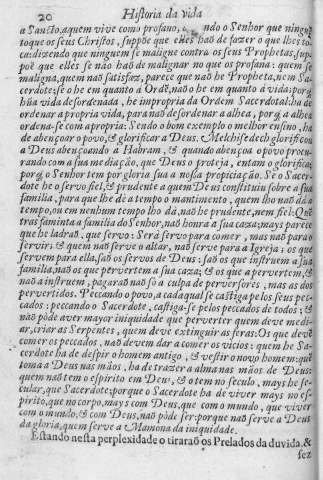 20 Historia da vida
a Sancto, a quem vive como profano, ndo o Senhor que ningué
toque os seus Christos, suppõe que elles haõ de fazer o que lhes to-
ca: dizendo que ninguem se maligne contra os seus Prophetas, sup-
poẽ que elles se naõ haõ de malignar no que os profana: quem se
maligna, quem naõ satisfaz, parece que naõ he Propheta, nem Sa-
cerdote; se o he em quanto á Ordẽ, naõ o he em quanto á vida; porq̃
hũa vida desordenada, he impropria da Ordem Sacerdotal: ha de
ordenar a propria vida, para naõ desordenar a alhea, porq̃ a alhea
ordena-se com a propria: Sendo o bom exemplo o melhor ensino, ha
de abençoar o povo, & glorificar a Deus. Melchisedech glorificou
a Deus abençoando a Habram, & quando abençoa o povo procu-
rando com a sua mediação, que Deus o proteja, entam o glorifica;
porq̃ o Senhor tem por gloria sua a nossa propiciação. Se o Sacer-
dote he o servo fiel, & prudente a quem Deus constituiu sobre a sua
familia, para que lhe dè a tempo o mantimento, quem lho naõ dá a
tempo, ou em nenhum tempo lho dá, naõ he prudente, nem fiel: Quẽ
tras faminta a familia do Senhor, naõ honra a sua caza; mays parece
que he ladraõ, que servo: Será servo para comer, mas naõ para
servir: & quem naõ serve o altar, naõ serve para a Igreja: os que
servem para ella, saõ os servos de Deus: saõ os que instruem a sua
familia, naõ os que pervertem a sua caza; & os que a pervertem, &
naõ a instruem, pagaraõ naõ só a culpa de perversores, mas as dos
pervertidos. Peccando o povo, a cada qual se castiga pelos seus pec-
cados: peccando o Sacerdote, castiga-se pelos peccados de todos: &
naõ póde aver mayor iniquidade que perverter quem deve medi-
ar, criar as Serpentes, quem deve extinguir as feras: Os que devẽ
comer os peccados, naõ devem dar a comer os vicios: quem he Sa-
cerdote ha de despir o homem antigo, & vestir o novo homem: quẽ
toma a Deus nas mãos, ha de trazer a alma nas mãos de Deus:
quem naõ tem o espirito em Deus, & o tem no seculo, mays he secu-
lar, que Sacerdote: porque o Sacerdote ha de viver mays no es-
pirito, que no corpo, mays com Deus, que com o mundo, que viver
com o mundo, & com Deus, naõ póde ser: porque naõ serve a Deus
da gloria, quem serve a Mamona da iniquidade.
Estando nesta perplexidade o tiraraõ os Prelados da duvida, &
fez